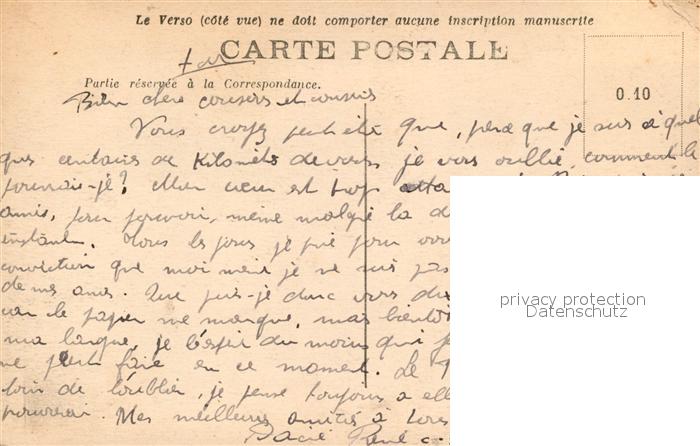 Le Verso (côté vue) ne doit comporter aucune inscription manuscrite
CARTE POSTALE
Partie réservée à la Correspondance.
0.10
Bien chers cousins et cousines
Vous croyez peut être que, parce que je suis à quel
ques centaines de kilomètres de vous je vous oublie, comment le
pourrais-je? Mon cœur est trop
amis, pour pouvoir, même malgré la
instant. Tous les jours je prie pour vous
conviction que moi même je ne suis pas
de mes amis. Que puis-je donc vous
car le papier me manque, mais bientôt
ma langue, je l'espère du moins qui
ne peut faire en ce moment. Le
loin de l'oublier, je pense toujours à elle
pourrai. Mes meilleures amitiés à tous
René
privacy protection
Datenschutz